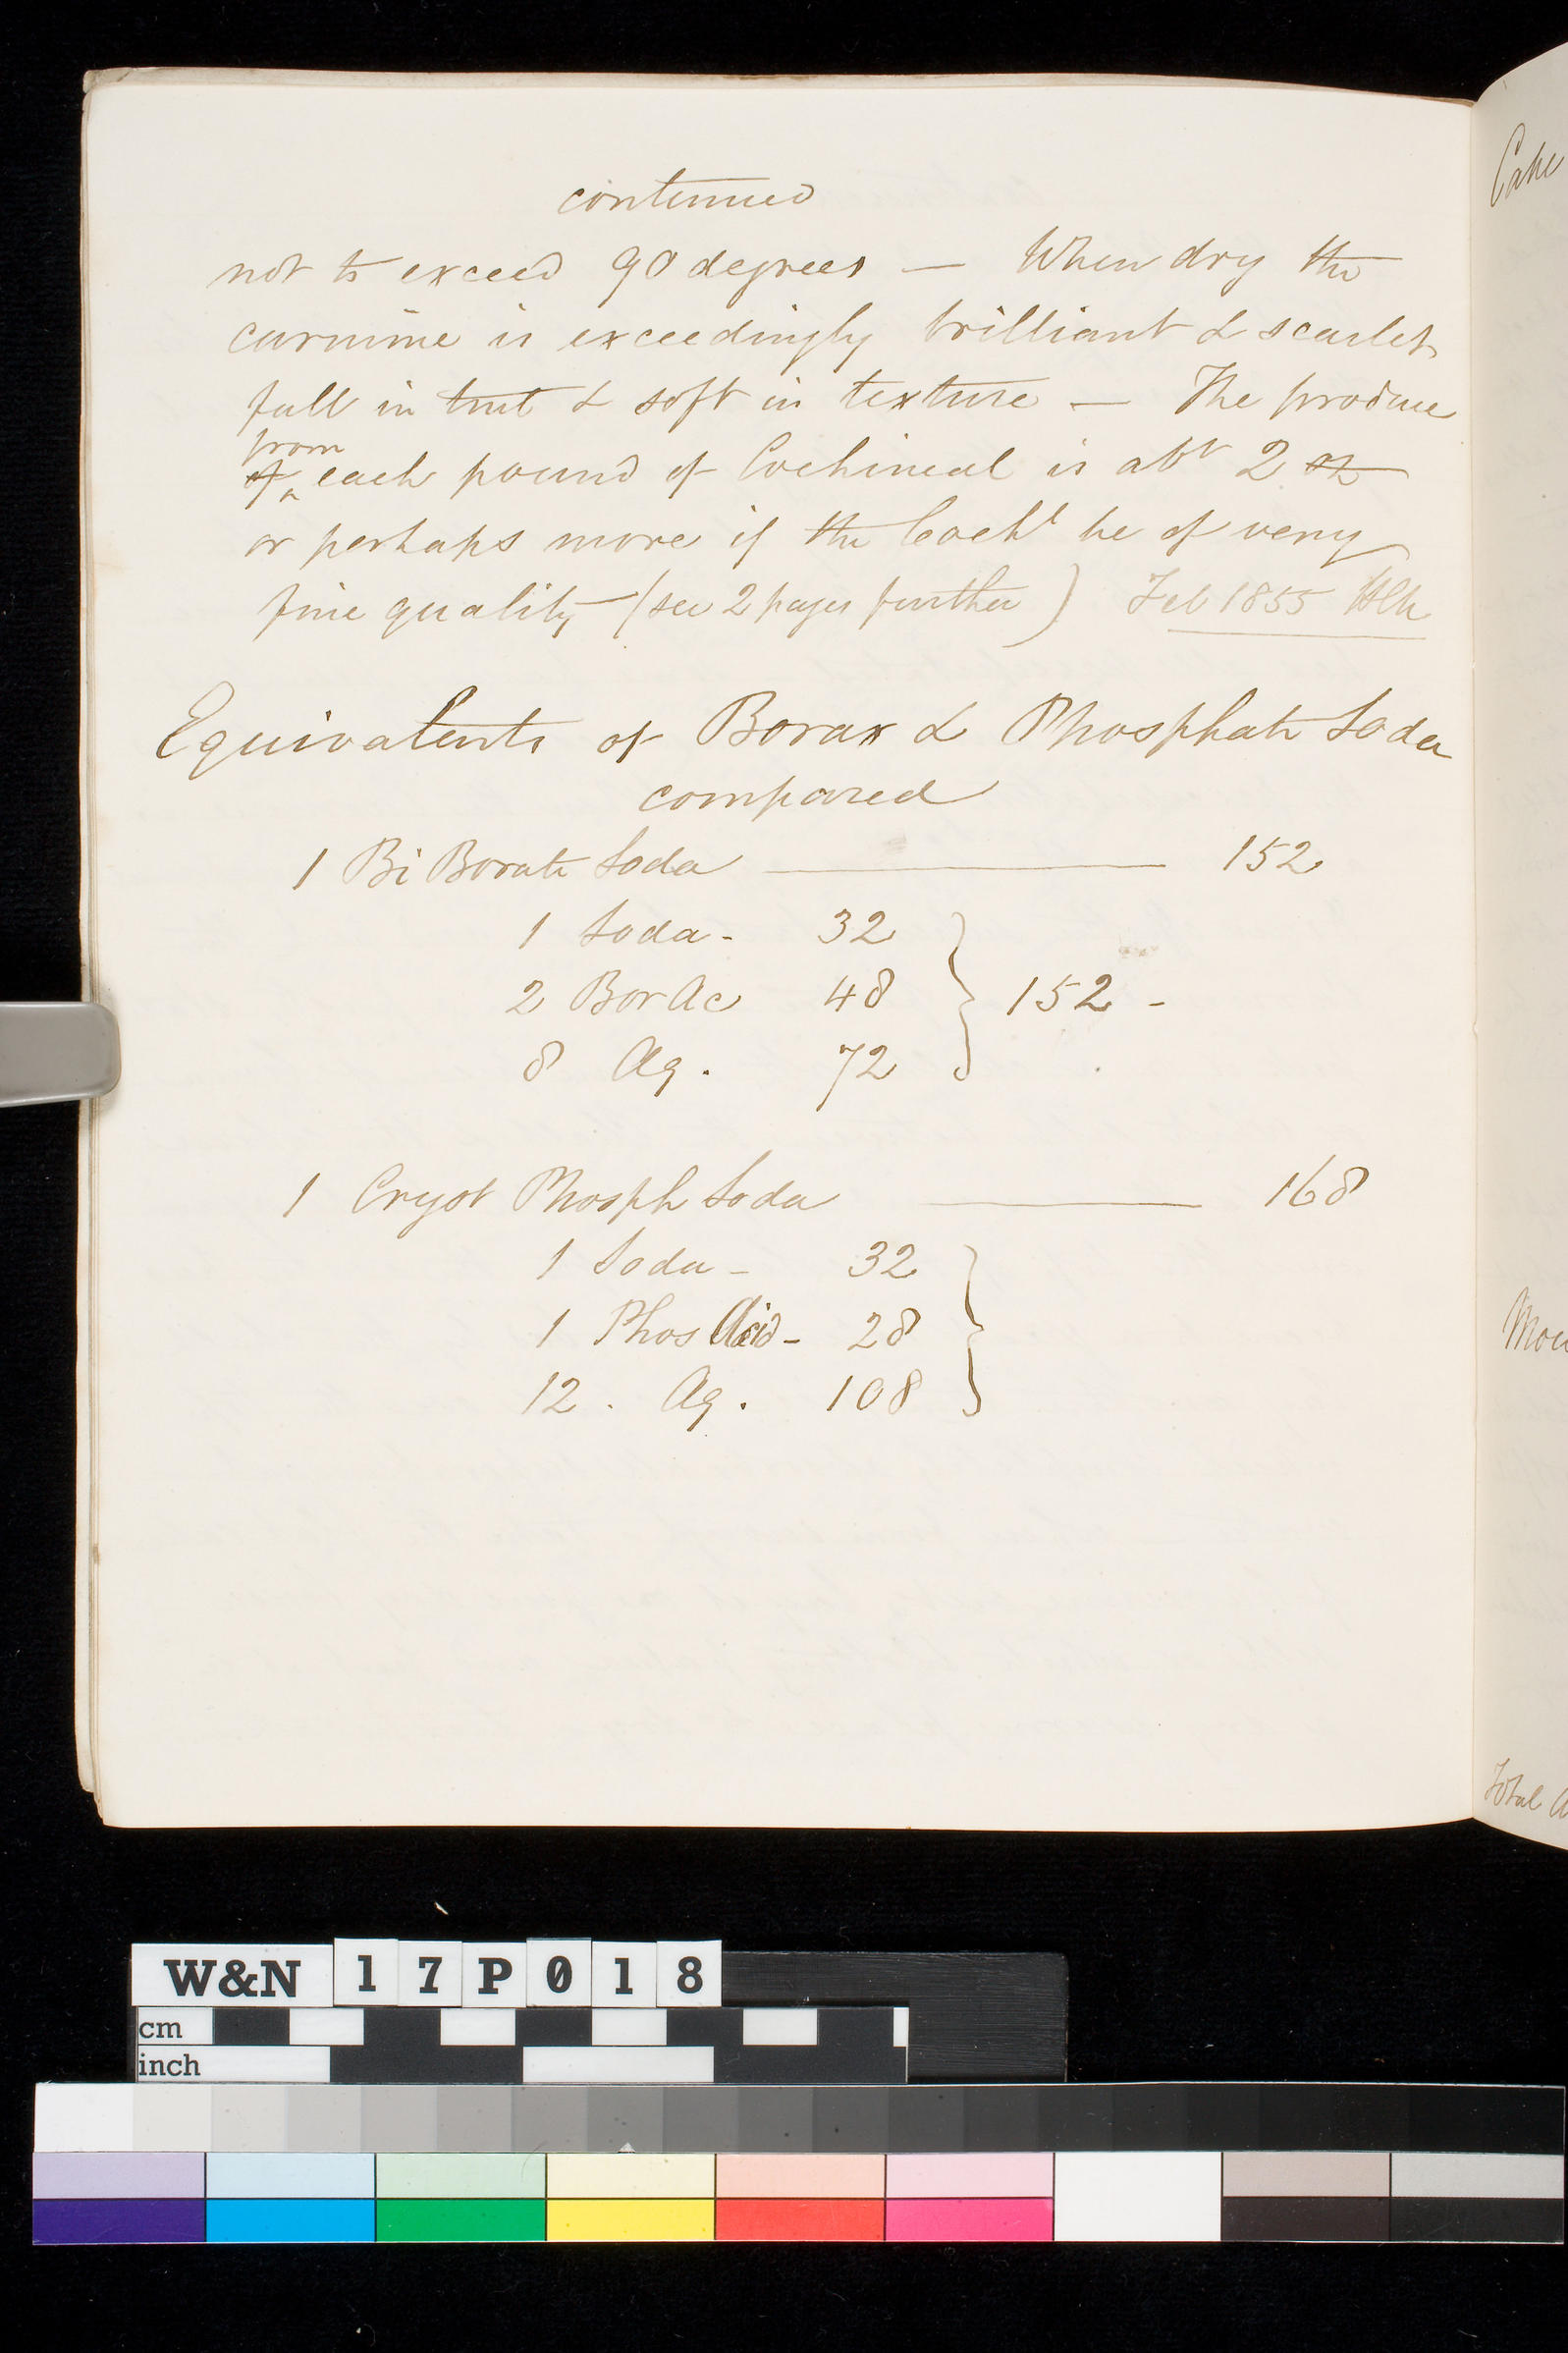 continued
not to exceed 90 degrees — When dry the
carmine is exceedingly brilliant & scarlet
full in tint & soft in texture — The produce
from
of ^ each pound of Cochineal is abt 2 oz
or perhaps more if the Cochl be of very
fine quality — (see 2 pages further) Feb 1855
Equivalents of Borax & Phosphate Soda
compared
1 Bi Borate Soda —— 152
1 Soda - 32
2 Bor Ac 48 } 152 -
8 Aq. 72
1 Cryst Phosph Soda —— 168
1 Soda - 32
1 Phos Acid - 28 }
12 . Aq. 108
Cake
Total
W&N 17P018
cm
inch